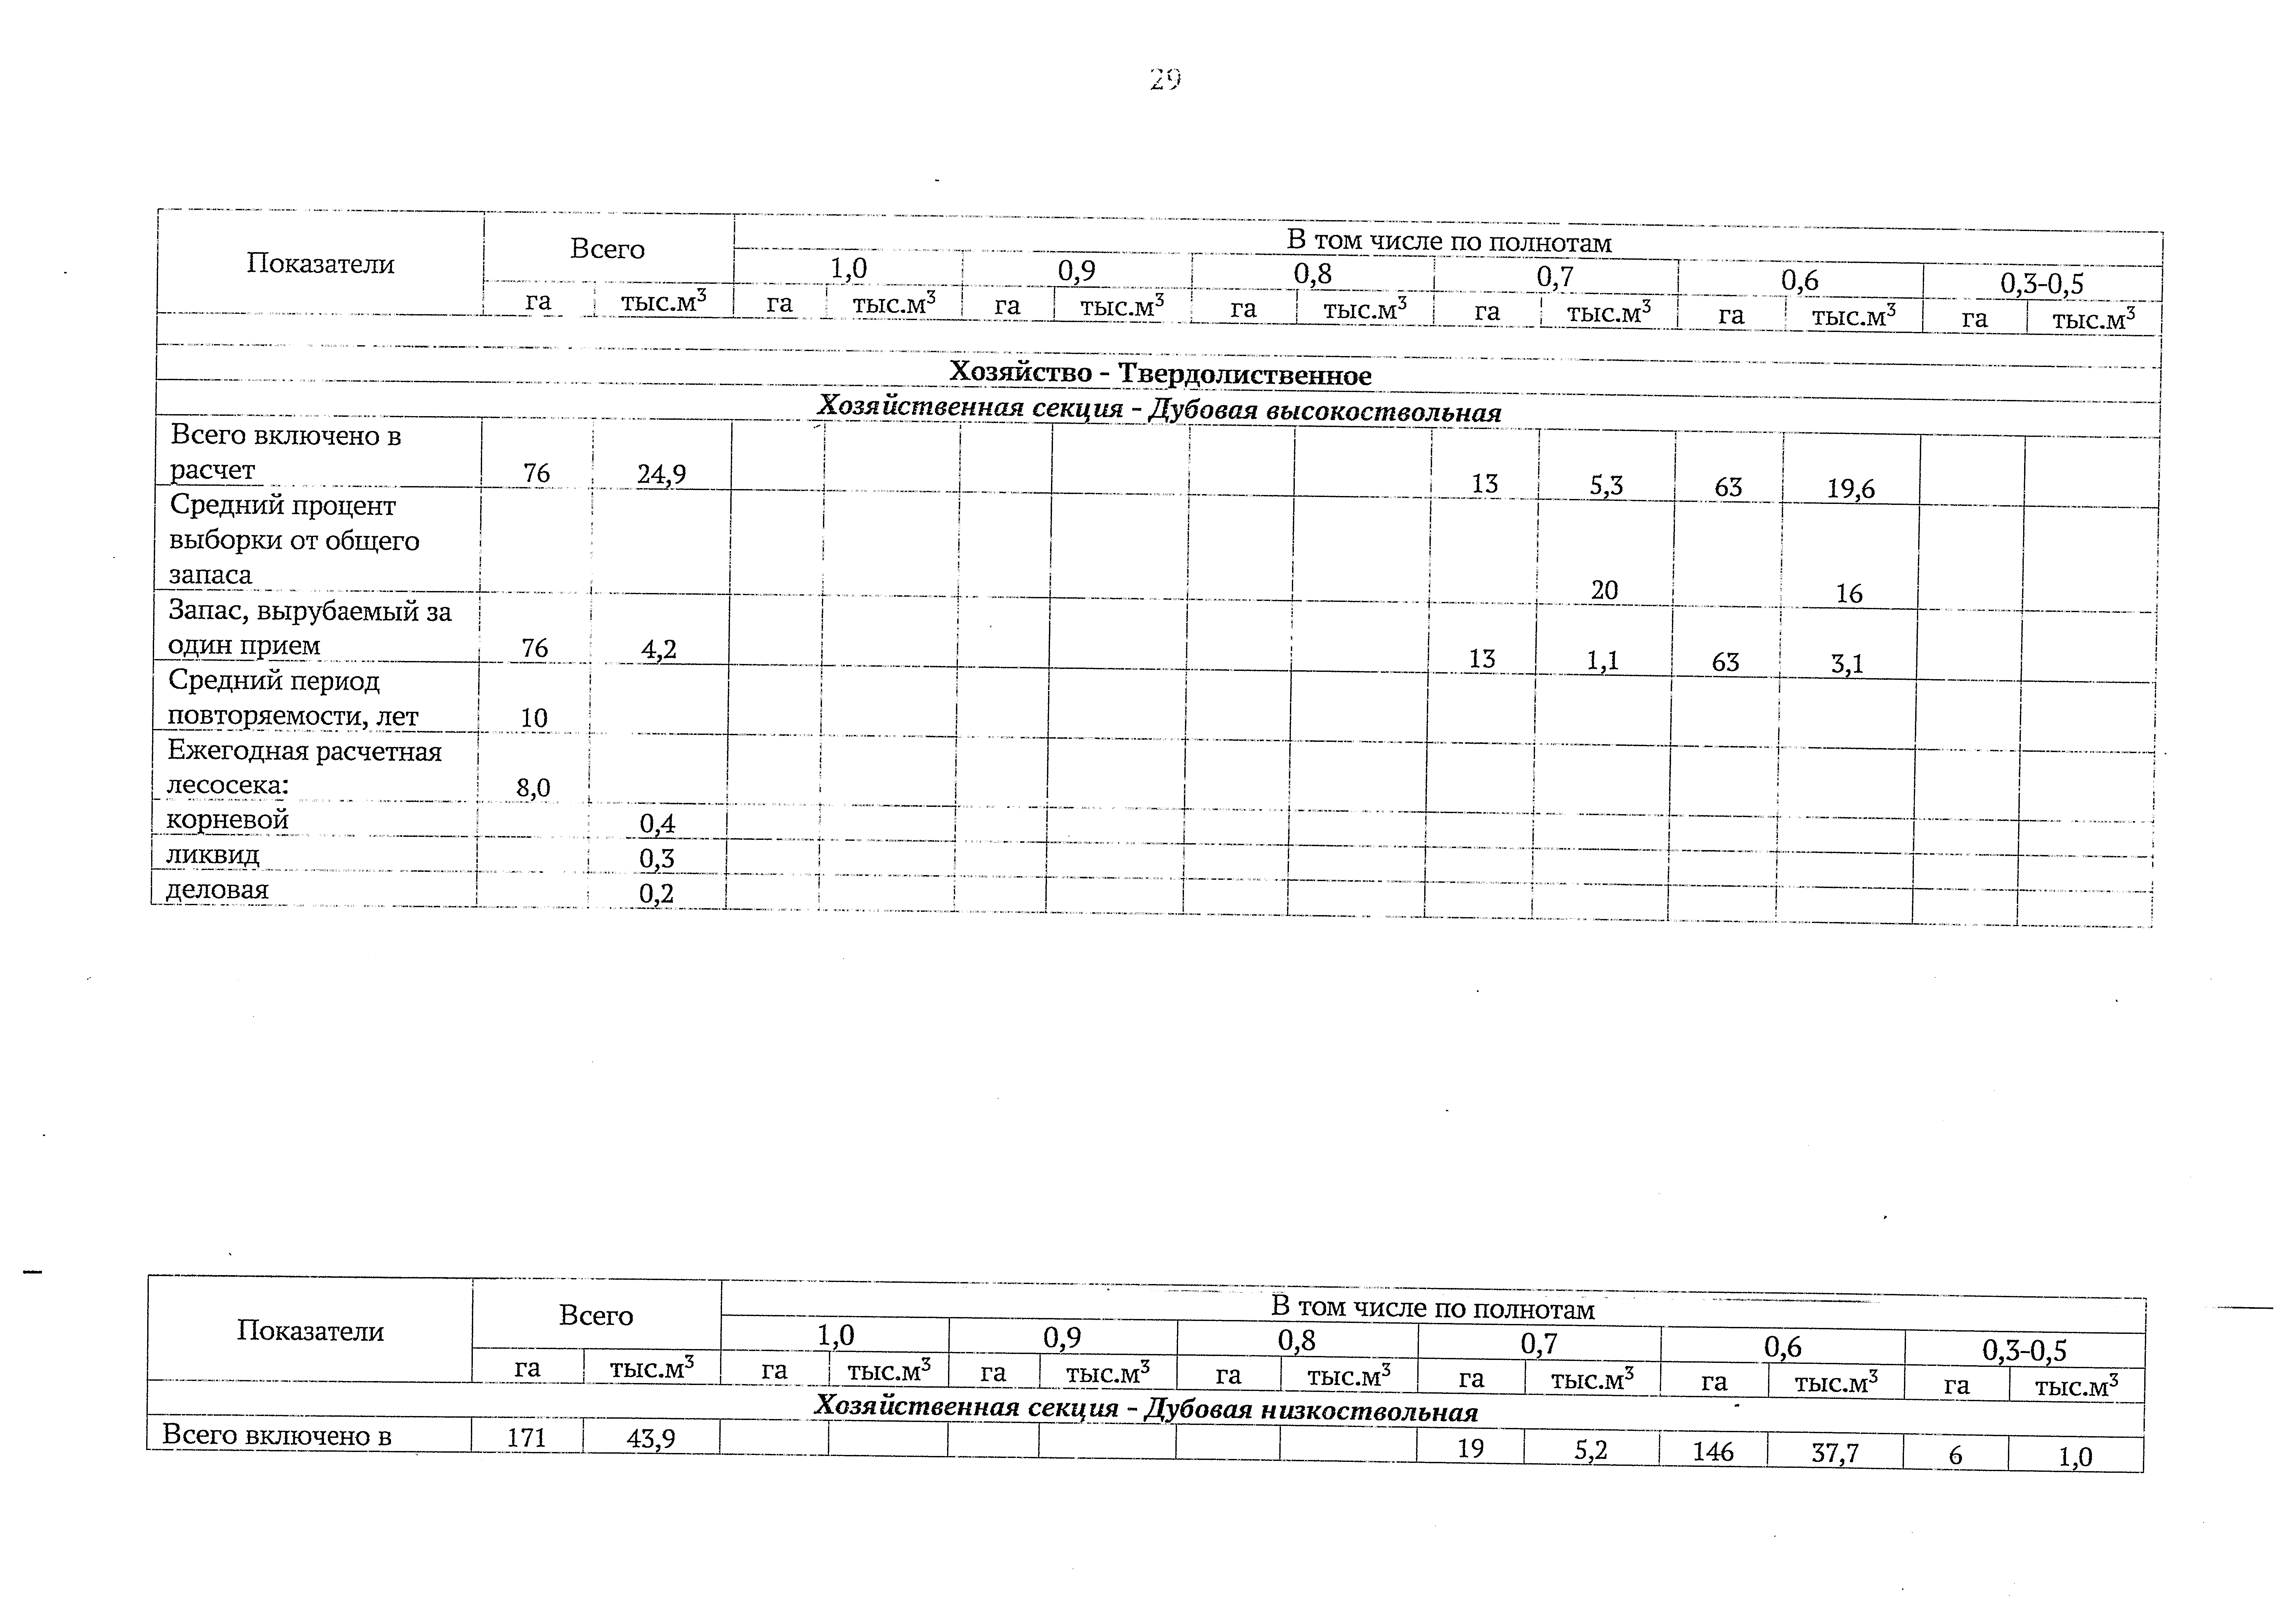 29
В том числе по полнотам
Показатели Всего 1,0 0,9 0,8 0,7 0,6 0,3-0,5
га тыс.м³ га тыс.м³ га тыс.м³ га тыс.м³ га тыс.м³ га тыс.м³ га тыс.м³
Хозяйство - Твердолиственное
Хозяйственная секция - Дубовая высокоствольная
Всего включено в
расчет 76 24,9 13 5,3 63 19,6
Средний процент
выборки от общего
запаса 20 16
Запас, вырубаемый за
один прием 76 4,2 13 1,1 63 3,1
Средний период
повторяемости, лет 10
Ежегодная расчетная
лесосека: 8,0
корневой 0,4
ликвид 0,3
деловая 0,2
В том числе по полнотам
Показатели Всего 1,0 0,9 0,8 0,7 0,6 0,3-0,5
га тыс.м³ га тыс.м³ га тыс.м³ га тыс.м³ га тыс.м³ га тыс.м³ га тыс.м³
Хозяйственная секция - Дубовая низкоствольная
Всего включено в 171 43,9 19 5,2 146 37,7 6 1,0